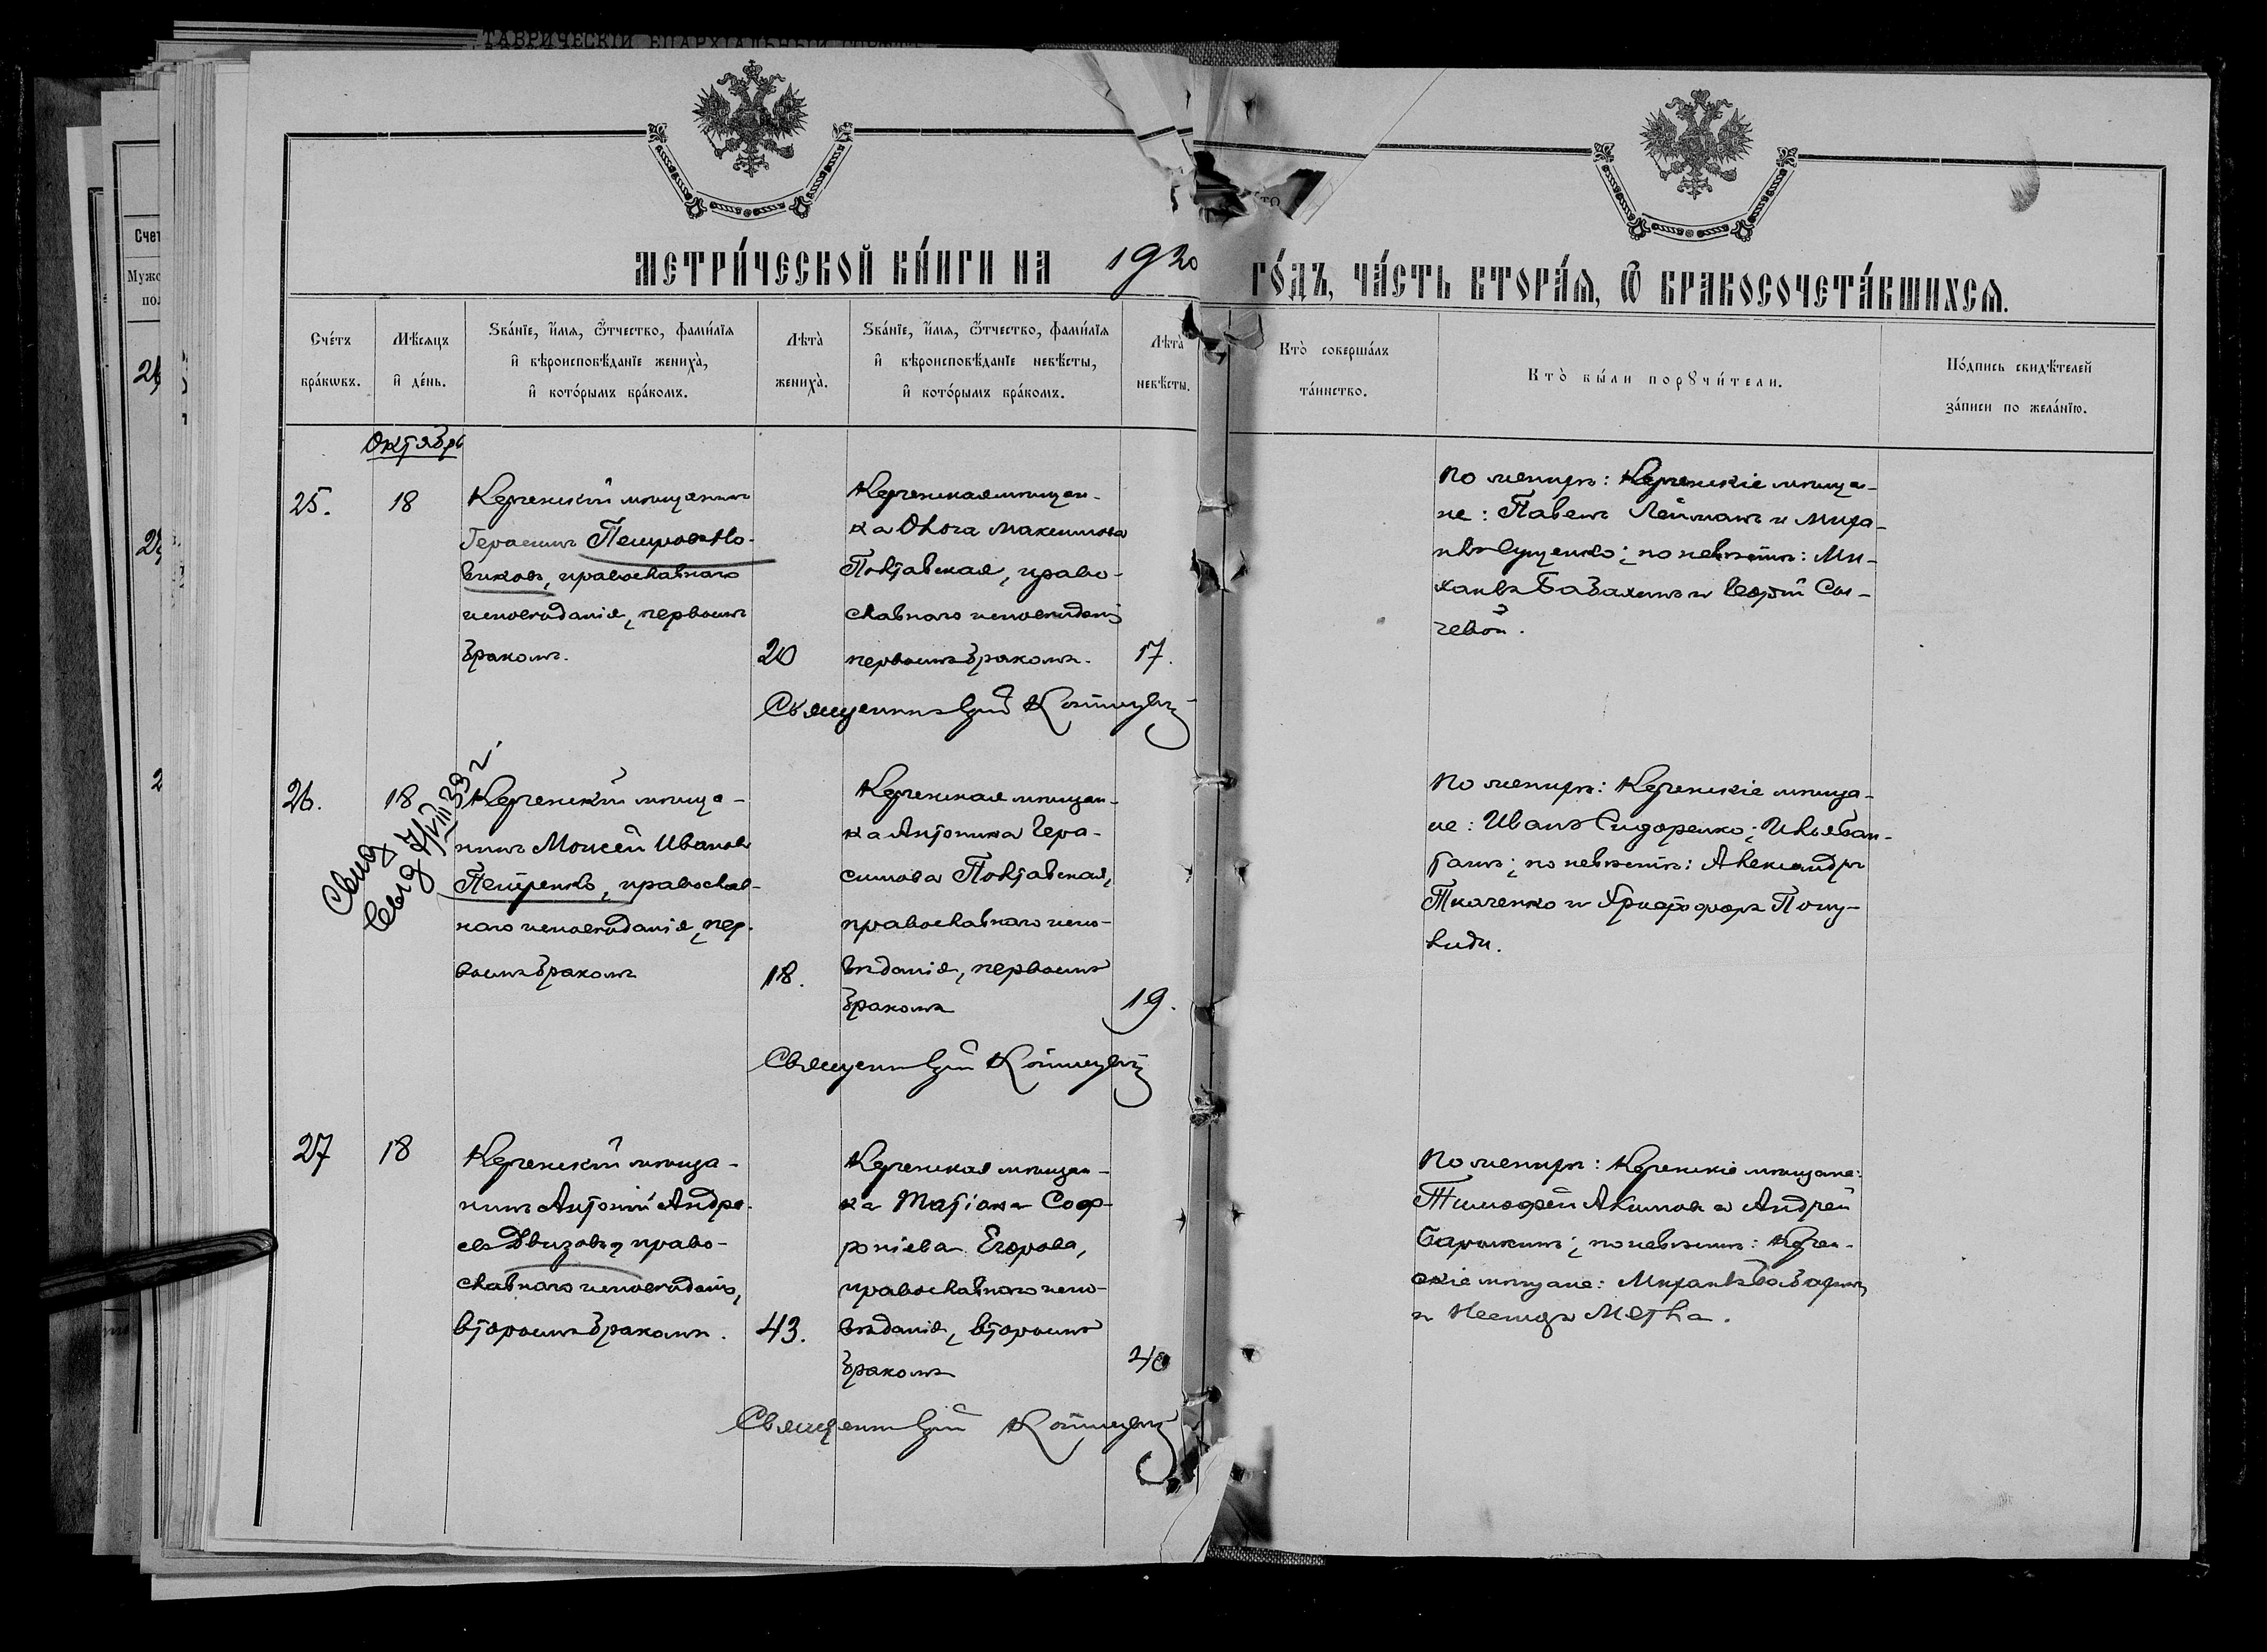 ТАВРИЧЕСКІЙ ЕПАРХІАЛЬНЫЙ
МЕТРИ́ЧЕСКОЙ КНИ́ГИ НА 1920 ГО́ДЪ, ЧА́СТЬ ВТОРА́Я, Ѿ БРАКОСОЧЕТА́ВШИХСЯ.
Сче́тъ бра́кѡвъ.
Мѣ́сяцъ и҆ де́нь.
Зва́нїе, и҆́мя, ѻ҆́тчество, фами́лїя
и҆ вѣроисповѣ́данїе жениха̀,
и҆ кото́рымъ бра́комъ.
Лѣта̀ жениха̀.
Зва́нїе, и҆́мя, ѻ҆́тчество, фами́лїя
и҆ вѣроисповѣ́данїе невѣ́сты,
и҆ кото́рымъ бра́комъ.
Лѣта̀ невѣ́сты.
Кто̀ соверша́лъ
та́инство.
Кто̀ бы́ли порꙋчи́тели.
По́дпись свидѣ́телей
за́писи по жела́нїю.
Октябрь
25.
18
Керченскій мѣщанинъ
Герасимъ Петровъ Но-
виковъ, православнаго
исповѣданія, первымъ
бракомъ.
20
Керченская мѣщан-
ка Ольга Максимова
Полтавская, право-
славнаго исповѣданія
первымъ бракомъ.
17.
Священникъ
По женихѣ: Керченскіе мѣща-
не: Павелъ Лейманъ и Миха-
илъ Сущенко; по невѣстѣ: Ми-
хаилъ Бабахинъ и Георгій Сы-
чевой.
26.
18
Свид
Свид 7/VIII 33 г.
Керченскій мѣща-
нинъ Моисей Ивановъ
Петренко, православ-
наго исповѣданія, пер-
вымъ бракомъ
18.
Керченская мѣщан-
ка Антонина Гера-
симова Полтавская,
православнаго испо-
вѣданія, первымъ
бракомъ
19.
Священникъ
По женихѣ: Керченскіе мѣща-
не: Иванъ Сидоренко; Илья
по невѣстѣ: Александръ
Ткаченко и Христофоръ
27
18
Керченскій мѣща-
нинъ Антоній Андре-
евъ Двизовъ, право-
славнаго исповѣданія,
вторымъ бракомъ.
43.
Керченская мѣщан-
ка Татіана Соф-
роніева Егорова,
православнаго испо-
вѣданія, вторымъ
бракомъ
40
Священникъ
По женихѣ: Керченскіе мѣщане:
Тимофей Акимовъ и Андрей
по невѣстѣ: Керчен-
скіе мѣщане: Михаилъ
и Метла.
Счет
Мужс
пол